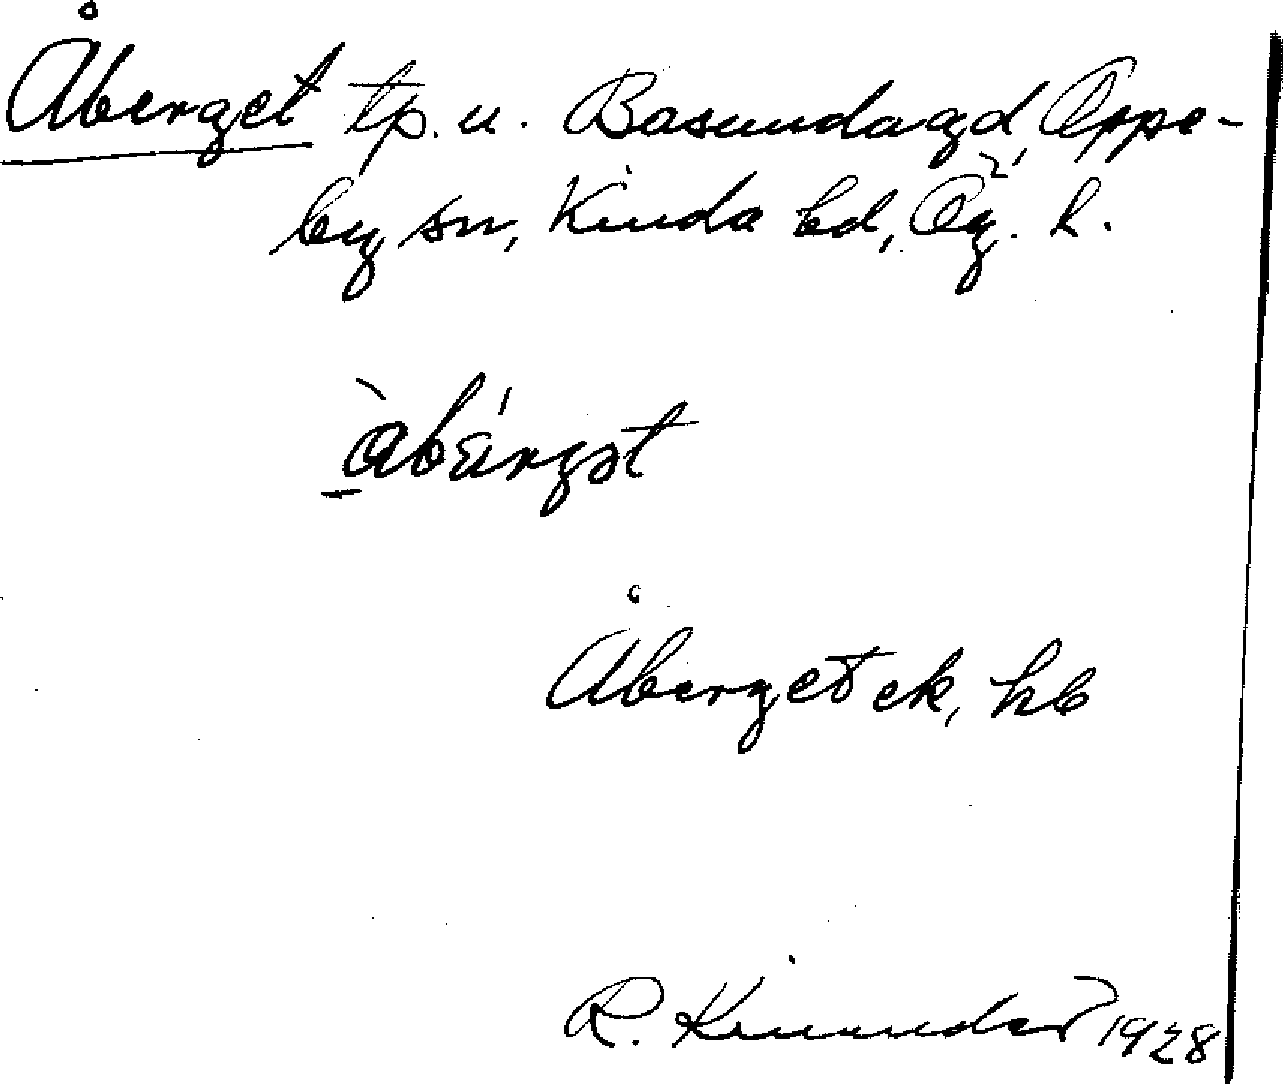 Åberget tp. u. Basundagd, Oppe-
by sn, Kinda hd, Ög. l.
åbärgət
Åberget ek, hb
R. Kinnander 1928